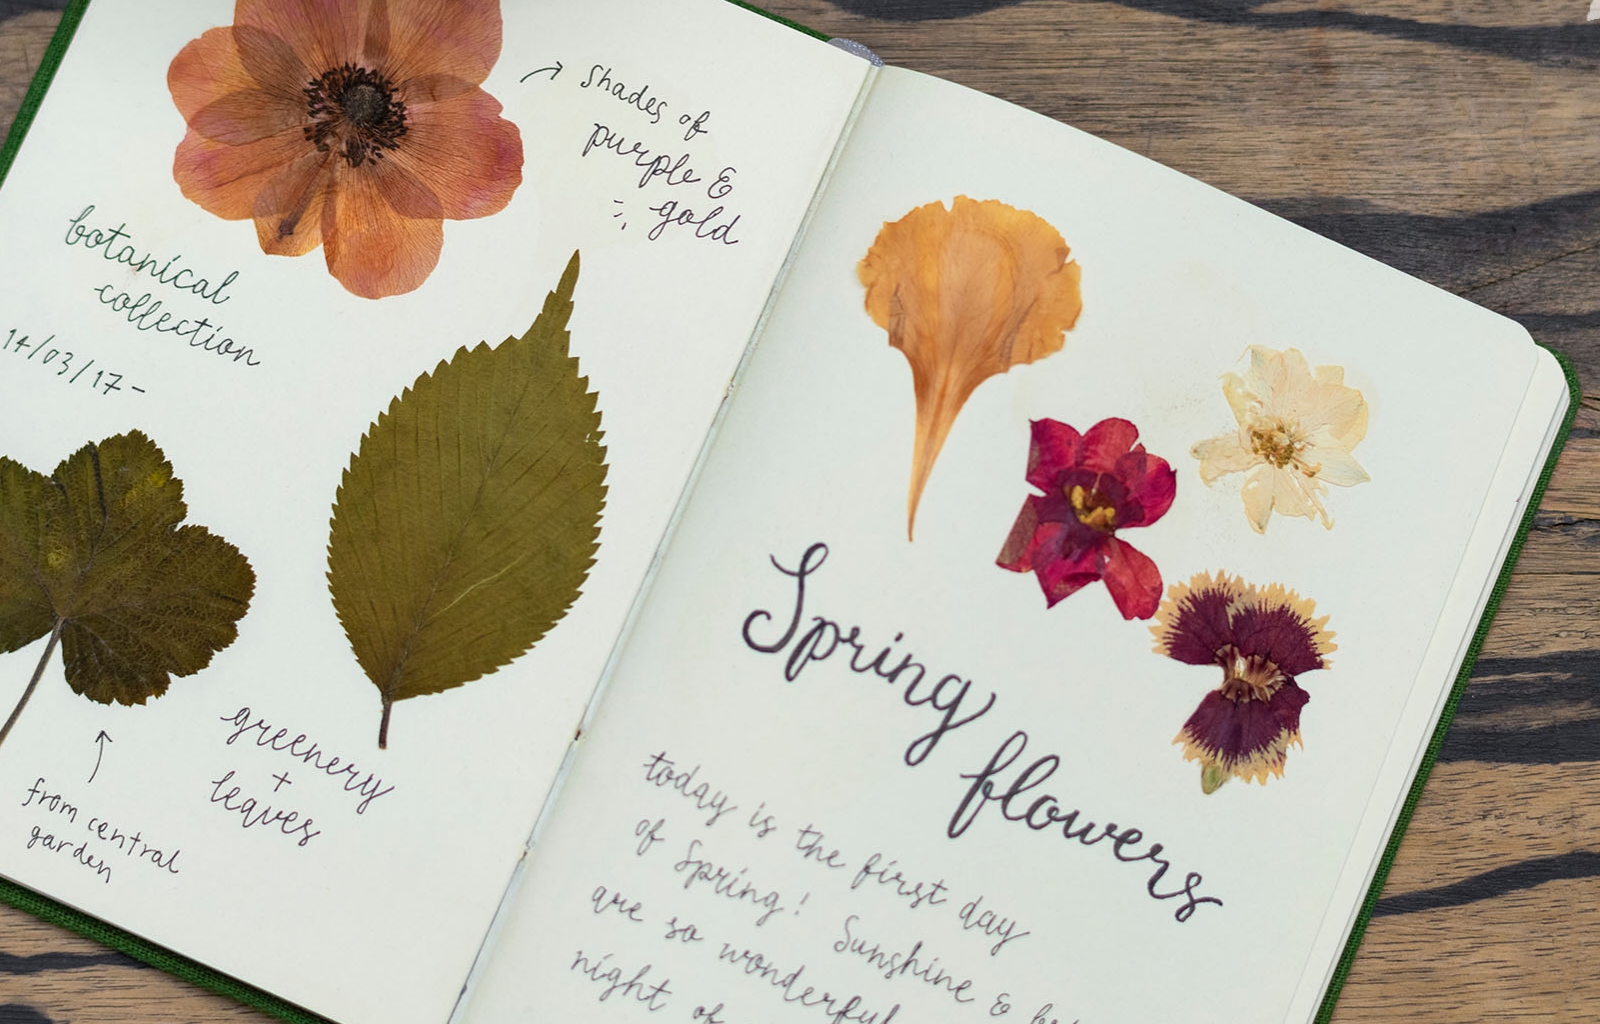 Shades of
purple &
gold
botanical
collection
14/03/17-
greenery
+
leaves
from central
garden
Spring flowers
today is the first day
of Spring! Sunshine &
are so wonderful
night of